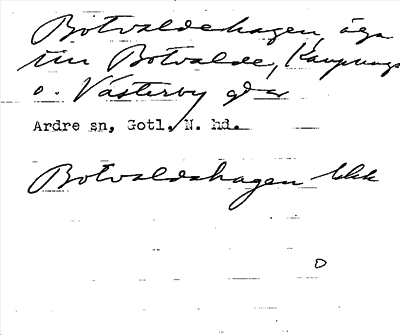 Botvaldehagen, äga
till Botvalde, Kaupungs
o. Västerby gdar
Ardre sn, Gotl. N. hd.
Botvaldshagen bkk
D